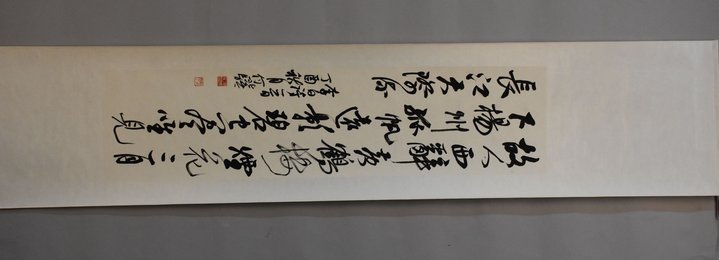 故人西辭黃鶴樓煙花三月
下揚州孤帆遠影碧空盡唯見
長江天際流
李白詩一首
丁酉秋月